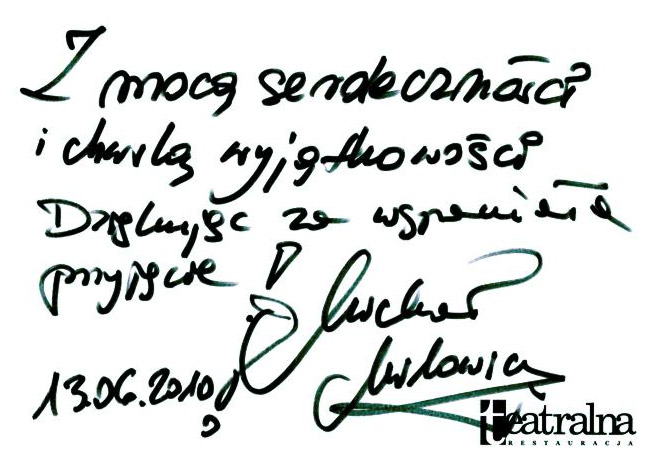 Z mocą serdeczności
i chwilą wyjątkowości
Dziękując za wspaniałe
przyjęcie!
Michał
Milowicz
13.06.2010
teatralna
RESTAURACJA